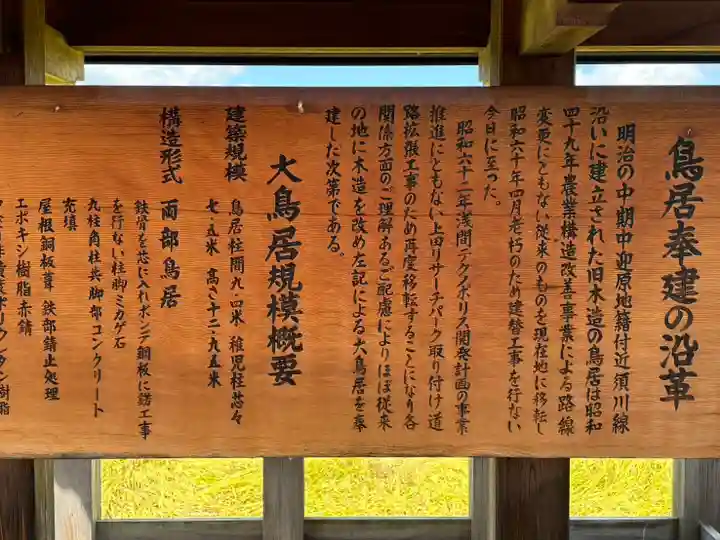 鳥居奉建の沿革
明治の中期中迎原地籍付近須川線
沿いに建立された旧木造の鳥居は昭和
四十九年農業構造改善事業による路線
変更にともない従来のものを現在地に移転し
昭和六十年四月老朽のため建替工事を行ない
今日に至った。
昭和六十二年浅間テクノポリス開発計画の事業
推進にともない上田リサーチパーク取り付け道
路拡張工事のため再度移転することになり各
関係方面のご理解あるご配慮によりほぼ従来
の地に木造を改め左記による大鳥居を奉
建した次第である。
大鳥居規模概要
建築規模 鳥居柱間九・四米 稚児柱芯々
七・五米 高さ十二・九五米
構造形式 両部鳥居
鉄骨を芯に入れボンデ鋼板に錺工事
を行ない柱脚ミカゲ石
丸柱角柱共脚部コンクリート
充填
屋根銅板葺 鉄部錆止処理
エポキシ樹脂赤錆